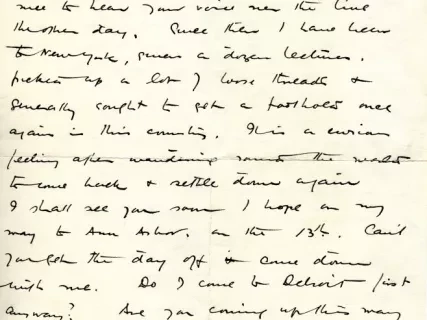 nice to hear your voice over the line
the other day. Since then I have been
to New York, given a dozen lectures,
picked up a lot of loose threads &
generally sought to get a foothold once
again in this country. It is a curious
feeling after wandering round the world
to come back & settle down again
I shall see you soon I hope on my
way to Ann Arbor, on the 13th. Can't
you get the day off & come down
with me. Do I come to Detroit first
anyway? Are you coming up this way